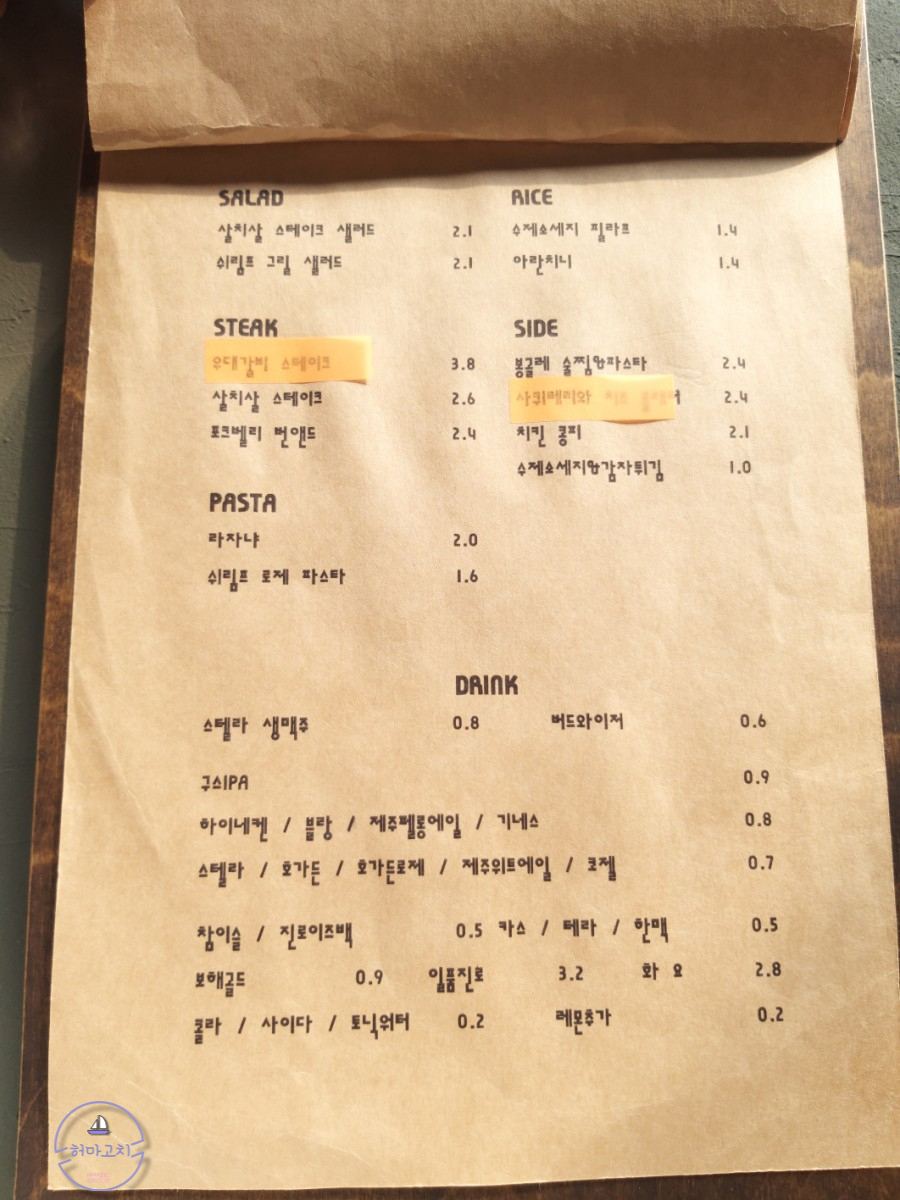 SALAD
살치살 스테이크 샐러드 2.1
쉬림프 그릴 샐러드 2.1
RICE
수제소세지 필라프 1.4
아란치니 1.4
STEAK
우대갈비 스테이크 3.8
살치살 스테이크 2.6
포크벨리 번앤드 2.4
SIDE
봉골레 술찜&파스타 2.4
사퀴테리와 치즈 2.4
치킨 콩피 2.1
수제소세지&감자튀김 1.0
PASTA
라자냐 2.0
쉬림프 로제 파스타 1.6
DRINK
스텔라 생맥주 0.8 버드와이저 0.6
구스IPA 0.9
하이네켄 / 블랑 / 제주펠롱에일 / 기네스 0.8
스텔라 / 호가든 / 호가든로제 / 제주위트에일 / 코젤 0.7
참이슬 / 진로이즈백 0.5 카스 / 테라 / 한맥 0.5
보해골드 0.9 일품진로 3.2 화 요 2.8
콜라 / 사이다 / 토닉워터 0.2 레몬추가 0.2
허마고치